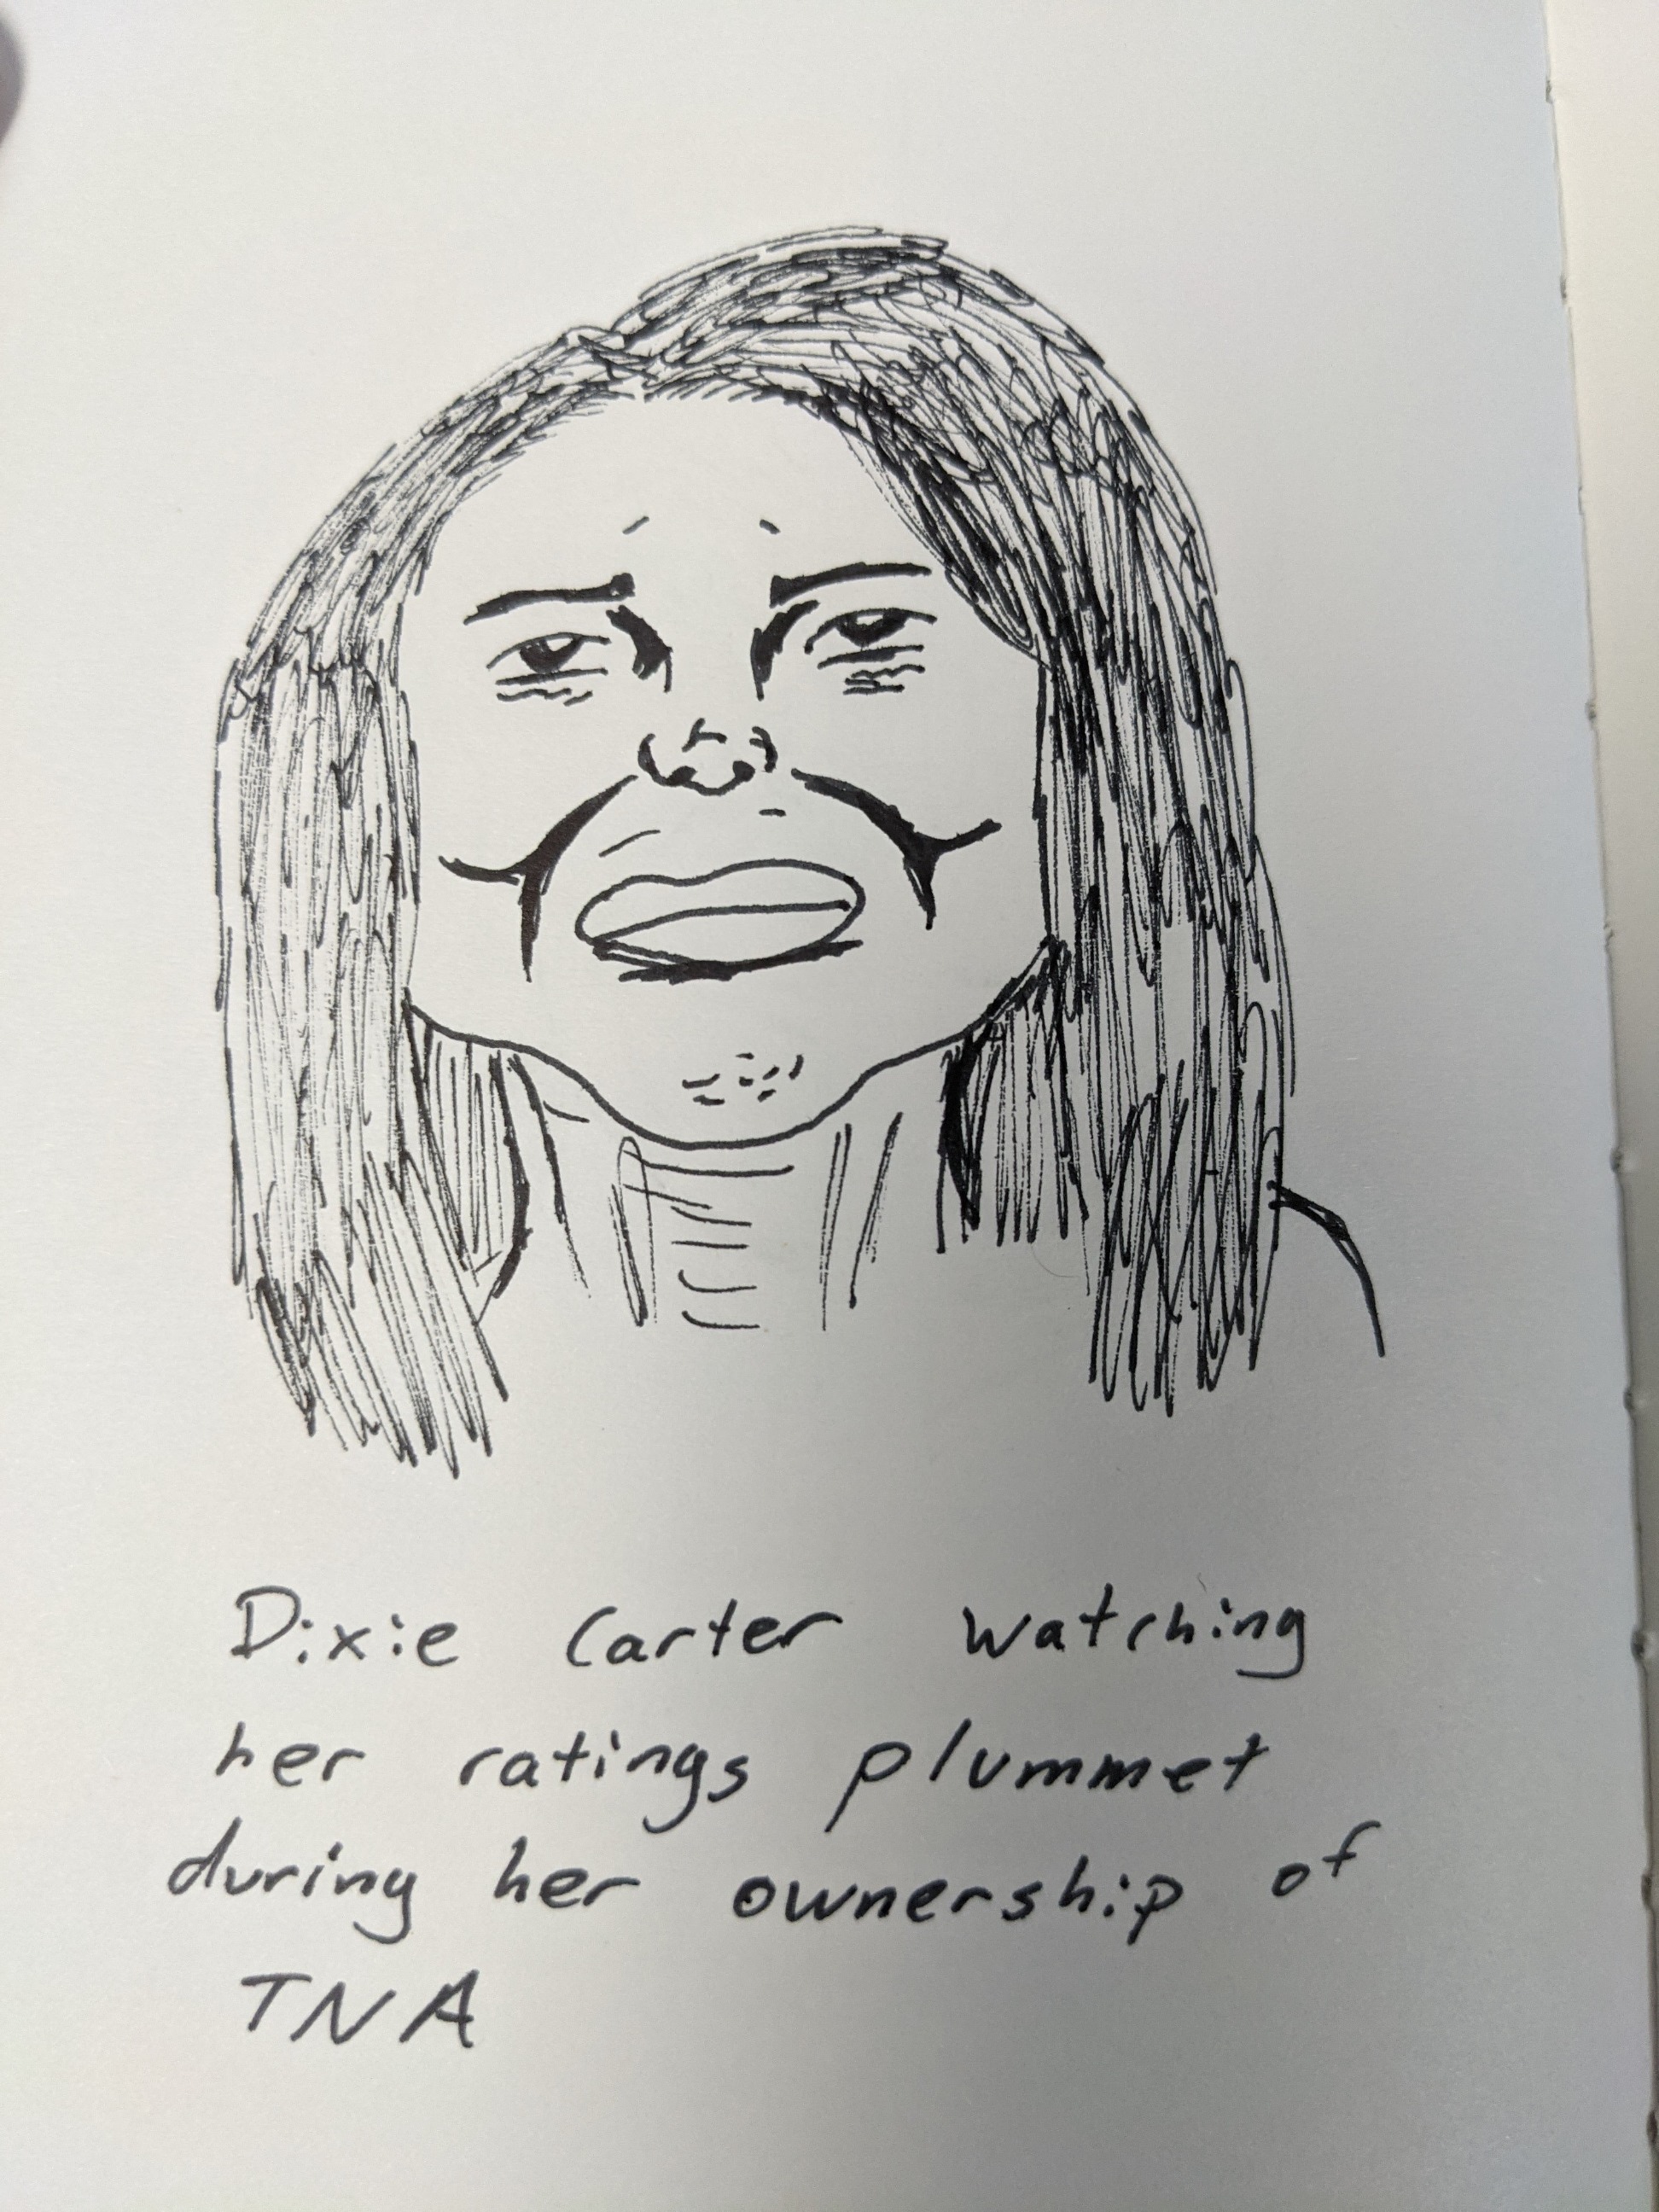 Dixie Carter watching
her ratings plummet
during her ownership of
TNA